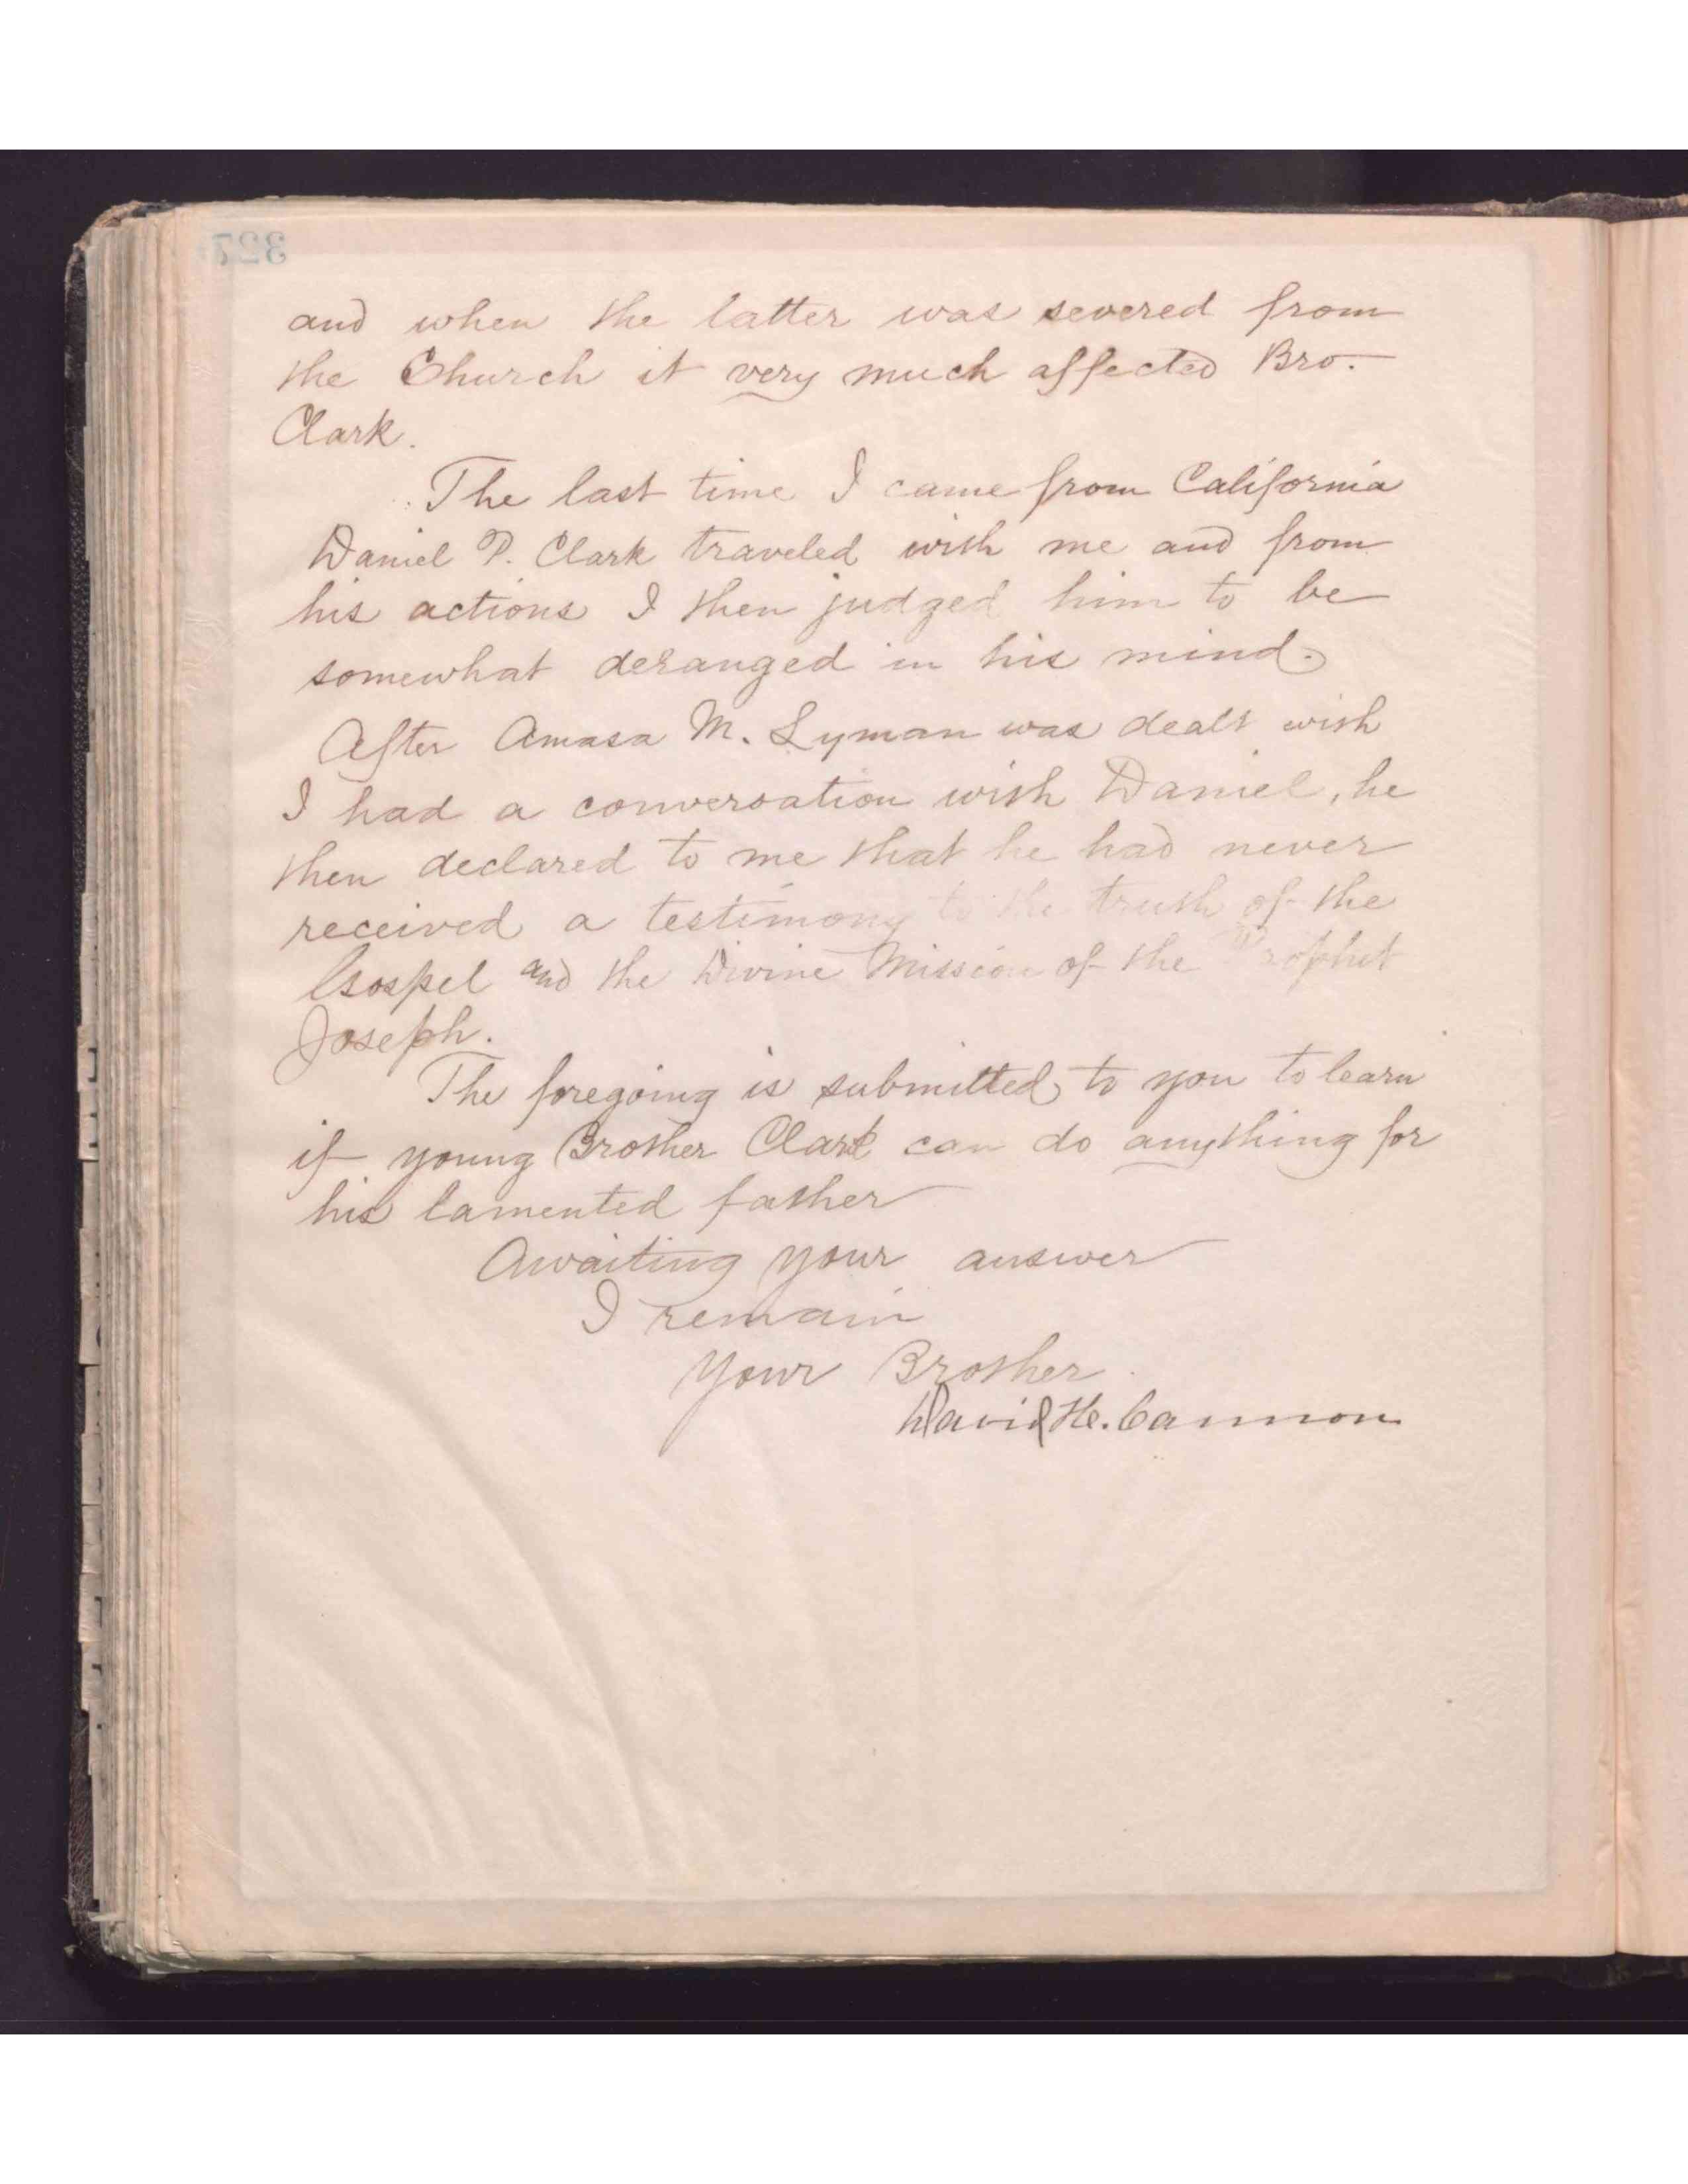 327
and when the latter was severed from
the Church it very much affected Bro.
Clark.
The last time I came from California
Daniel P. Clark traveled with me and from
his actions I then judged him to be
somewhat deranged in his mind.
After Amasa M. Lyman was dealt with
I had a conversation with Daniel, he
then declared to me that he had never
received a testimony to the truth of the
Gospel and the Divine Mission of the Prophet
Joseph.
The foregoing is submitted to you to learn
if young Brother Clark can do anything for
his lamented father
Awaiting your answer
I remain
Your Brother
David H. Cannon